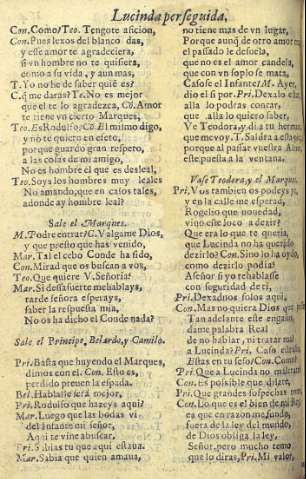 Lucinda perseguida.
Con. Como? Teo. Tengote aficion,
Con. Pues lexos del blanco das,
y esse amor te agradeciera,
si vn hombre no te quisiera,
como a su vida, y aun mas,
T. Yo no he de saber quiẽ es?
C. q̃ me daràs? Te. No es mejor
que el te lo agradezca, Cõ. Amor
te tiene vn cierto Marques,
Teo. Es Rodulfo? Cõ. El mismo digo,
y no te quiero en efeto,
porque guardo gran respeto,
a las cosas de mi amigo,
No es hombre el que es desleal,
Teo. Soys los hombres muy leales
No amando, que en casos tales,
adonde ay hombre leal?
Sale el Marques.
M. Podrè entrar? C. Valgame Dios,
y que presto que has venido,
Mar. Tal el cebo Conde ha sido,
Con. Mirad que os buscan a vos,
Teo. Que quiere V. Señoria?
Mar. Si dessa suerte me hablays,
tarde señora esperays,
saber la respuesta mia,
No os ha dicho el Conde nada?
Sale el Principe, Belardo, y Camilo.
Pri. Basta que huyendo el Marques,
dimos con el. Con. Esto es,
perdido preuen la espada.
Bel. Hablalle serà mejor,
Pri. Rodulfo que hazeys aqui?
Mar. Luego que las bodas vi
del Infante mi señor,
Aqui te vine a buscar,
Pri. Sabias tu que aqui estaua.
Mar. Sabia que quien amaua,
no tiene mas de vn lugar,
Porque aunq̃ de otro amor
el passado le desuela,
que no es el amor candela,
que con vn soplo se mata,
Casose el Infante? M. Ayer,
dio el si por. Pri. Dexalo
alla lo podras contar,
que alla lo quiero saber,
Ve Teodora, y di a tu
que me voy. T. Saldrà a
porque al passar vuestra
este puesta a la ventana.
Vase Teodora, y el Marques.
Pri. Vos tambien os podeys yr,
y en la calle me esperad,
Rogelio que nouedad,
vino esse loco a dezir?
Que era lo que te queria,
que Lucinda no ha querido
dezirlo? Con. Sino lo ha oydo,
como dezirlo podia?
A señor si yo te hablasse
con seguridad de ti,
Pri. Dexadnos solos aqui,
Con. Mas no quiera Dios que
Tan adelante este engaño,
dame palabra Real
de no hablar, ni tratar mal
a Lucinda? Pri. Caso estraño
Estàs en tu seso? Con.
Pri. Que a Lucinda no maltrate
Con. Es possible que dilate,
Pri. Que grandes sospechas
Con. Lo que es el bien de mi
es que es razon me funde,
fuera de la ley del mundo,
de Dios obliga la ley,
Señor, pero mucho temo
que lo diras, Pri. Mi valor,